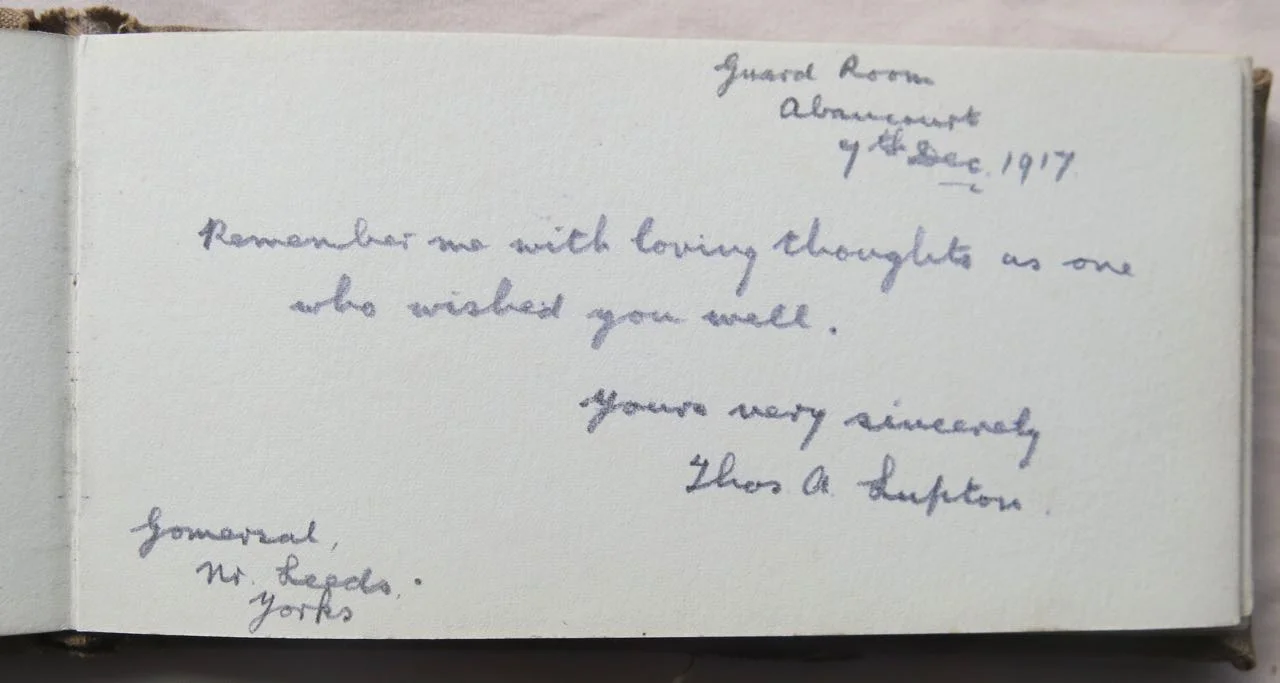 Guard Room
Abancourt
7th Dec. 1917
Remember me with loving thoughts as one
who wished you well.
Yours very sincerely
Thos A Lupton.
Gomersal,
Nr. Leeds.
Yorks